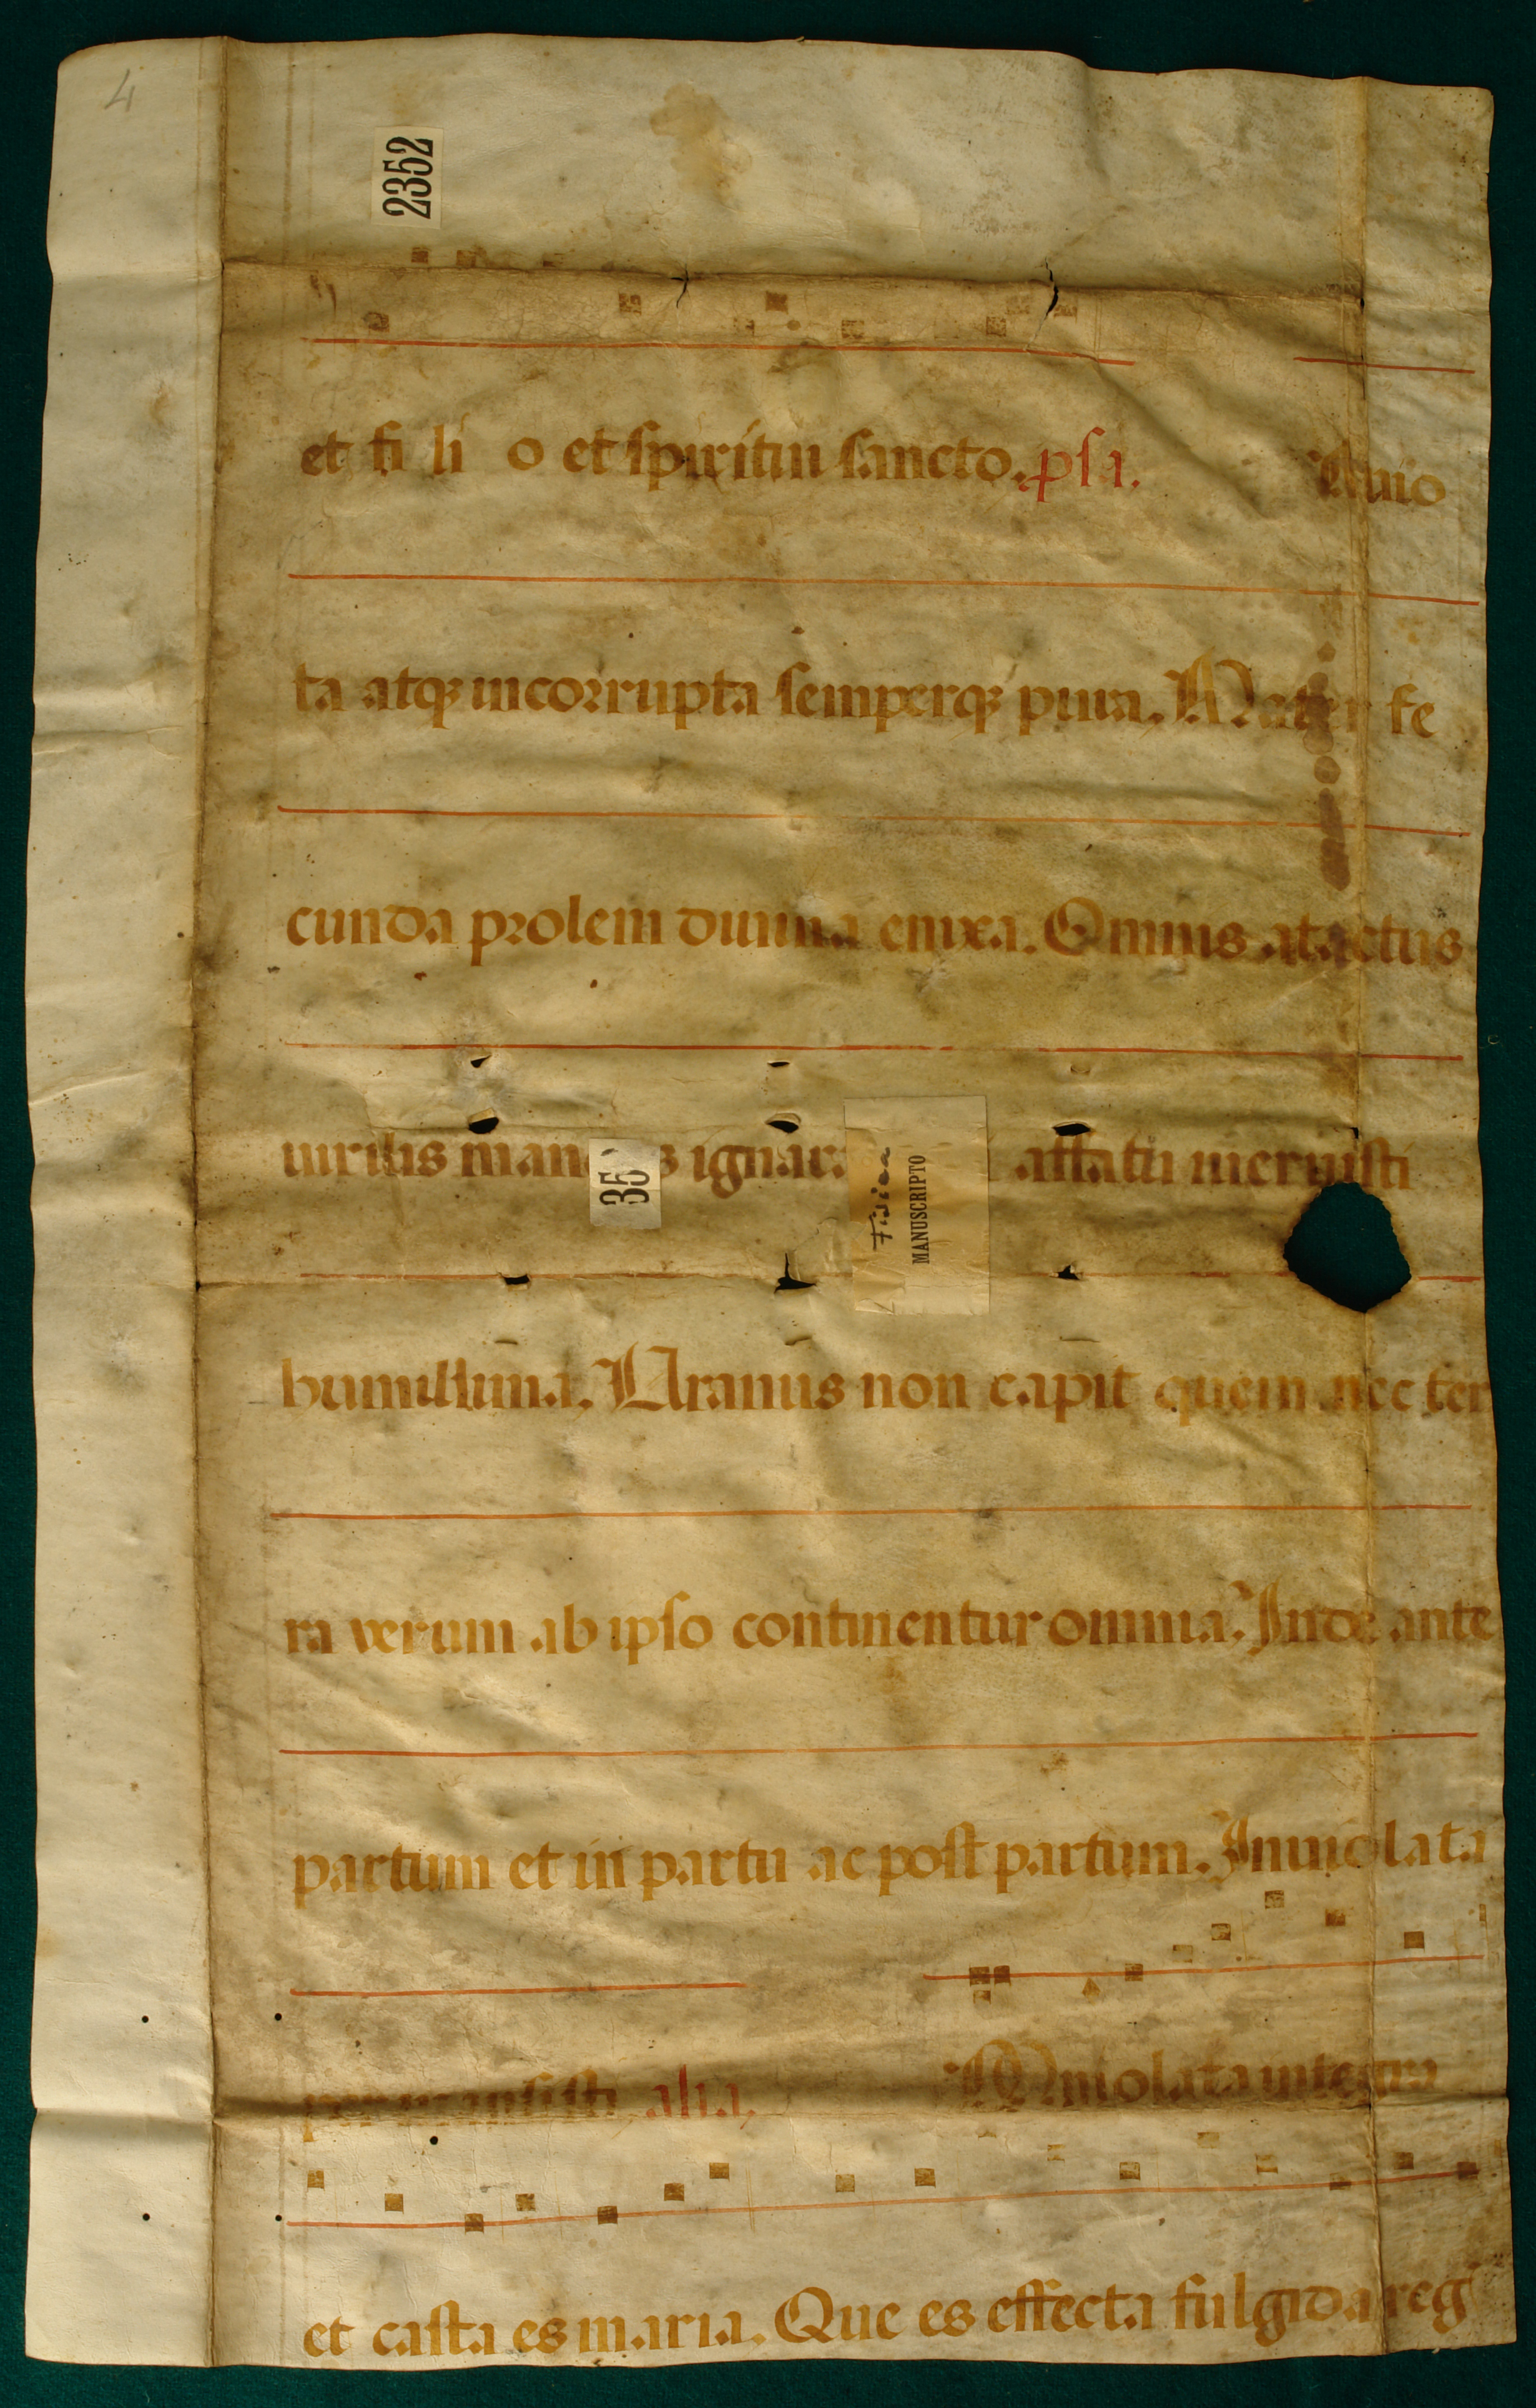 4
2352
et fi li o et spiritui sancto. psa. Inuio
ta atq incorrupta semperq pura. Mater fe
cunda prolem diuina enixa. Omnis atactus
uirilis manens ignara affatu meruisti
humillima. Uranus non capit quem nec ter
ra verum ab ipso continentur omnia. Inde ante
partum et in partu ac post partum. Inuiolata
permansisti alia, Inuiolata integra
et casta es maria. Que es effecta fulgida reg
35
Fisica
MANUSCRIPTO